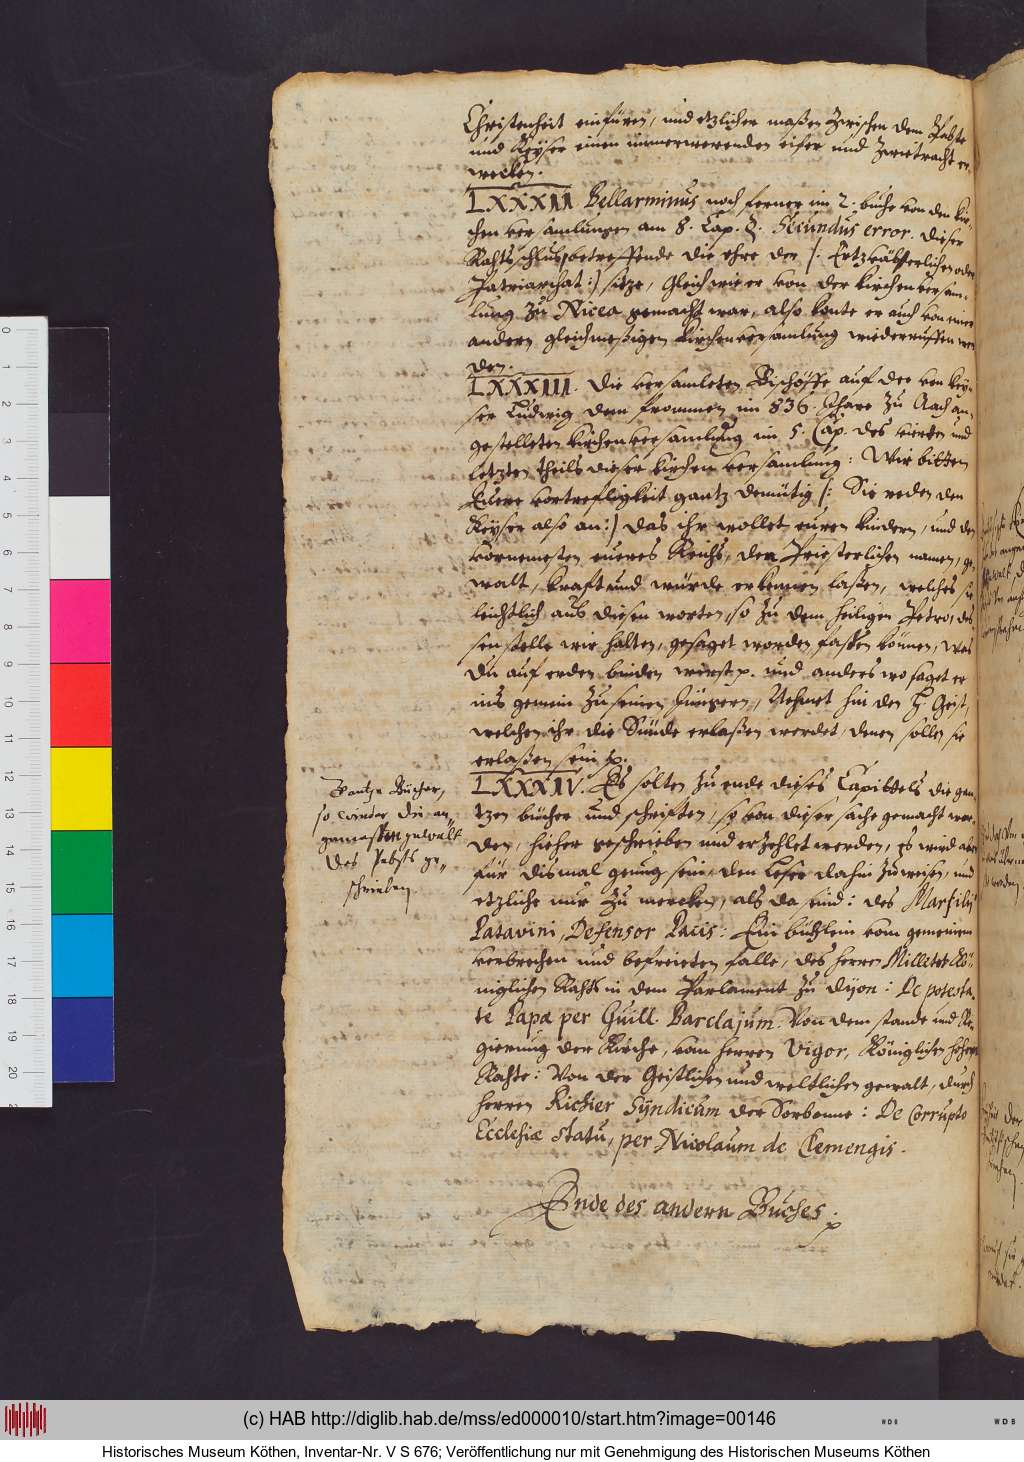 Christenheit einfüren, und etzlicher maßen zwischen dem Pabste
und Keyser einen immerwerenden eifer und zwietracht er-
wecken.
LXXXII Bellarminus noch ferner im 2. buche von den kir-
chen versamlungen am 8. Cap. §. Secundus error. dieser
Rahtsschluß, betreffende die ehre der /: Ertzväterlichen oder
Patriarchat :/ sitze, gleich wie er von der kirchen versam-
lung zu Nicea gemacht war, also konte er auch von einer
andern gleichmeßigen kirchenversamlung wiederruffen wer
den.
LXXXIII. Die versamleten Bischöffe auf der von key-
ser Ludwig dem frommen im 836. Jhare zu Aach an-
gestelleten kirchenversamlung im 5. Cap. des vierten und
letzten theils dieser kirchen versamlung: Wir bitten
Euere vortrefligkeit gantz demütig /: Sie reden den
Keyser also an :/ das ihr wollet euren kindern, und den
vornemesten eueres Reichs, der Priesterlichen namen, ge-
walt, kraft und würde erkennen laßen, welches sie
leichtlich aus diesen worten, so zu dem heiligen Petro, des
sen stelle wir halten, gesaget worden, faßen können, was
du auf erden binden wirst p. und anders wo saget er
ins gemein zu seinen Jüngern, Nehmet hin den H. Geist,
welchen ihr die Sünde erlaßen werdet, denen sollen sie
erlaßen sein p.
LXXXIV. Es solten zu ende dieses Capittels die gan-
tzen bücher und schriften, so von dieser sache gemacht wor-
den, hieher geschrieben und erzehlet werden, es wird aber
für dismal genug sein, den Leser dahin zu weisen, und
etzliche nur zu mercken, als da sind: des Marsilij
Patavini, Defensor Pacis: Ein büchlein vom gemeinen
verbrechen und befreieten falle, des herren Milletot Kö-
niglichen Rahts in dem Parlament zu Dijon: De potesta-
te Papæ per Guill. Barclajum. Von dem stande und Re-
gierung der Kirche, vom herren Vigor, Königlichen hohen
Rahte: Von der Geistlichen und weltlichen gewalt, durch
herren Richier Syndicum der Sorbonne: De Corrupto
Ecclesiæ statu, per Nicolaum de Clemengis.
Ende des andern Buches.
Gantze Bücher,
so wieder die an-
gemaßten gewalt
des Pabsts ge-
schrieben.
0
1
2
3
4
5
6
7
8
9
10
11
12
13
14
15
16
17
18
19
20
(c) HAB http://diglib.hab.de/mss/ed000010/start.htm?image=00146
WDB
WDB
Historisches Museum Köthen, Inventar-Nr. V S 676; Veröffentlichung nur mit Genehmigung des Historischen Museums Köthen